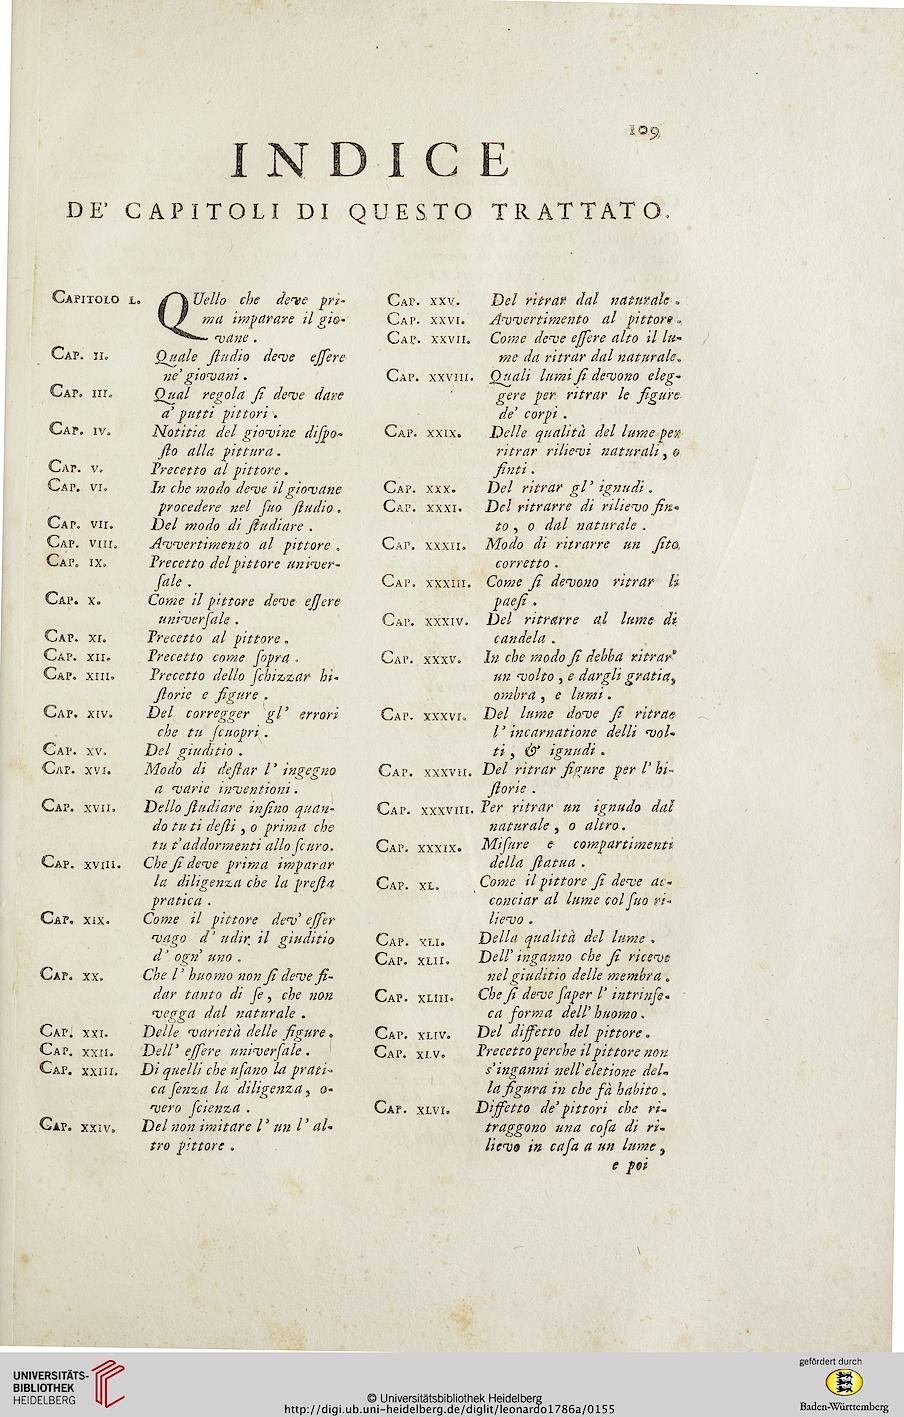 109
INDICE
DE' CAPITOLI DI QUESTO TRATTATO.
CAPITOLO I. QUello che deve pri-
ma imparare il gio-
vane.
CAP. II. Quale ſtudio deve eſſere
ne' giovani.
CAP. III. Qual regola ſi deve dare
a' putti pittori.
CAP. IV. Notitia del giovine diſpo-
ſto alla pittura.
CAP. V. Precetto al pittore.
CAP. VI. In che modo deve il giovane
procedere nel ſuo ſtudio.
CAP. VII. Del modo di ſtudiare.
CAP. VIII. Avvertimento al pittore.
CAP. IX. Precetto del pittore univer-
ſale.
CAP. X. Come il pittore deve eſſere
univerſale.
CAP. XI. Precetto al pittore.
CAP. XII. Precetto come ſopra.
CAP. XIII. Precetto dello ſchizzar hi-
ſtorie e figure.
CAP. XIV. Del corregger gl' errori
che tu ſcuopri.
CAP. XV. Del giuditio.
CAP. XVI. Modo di deſtar l' ingegno
a varie inventioni.
CAP. XVII. Dello ſtudiare inſino quan-
do tu ti deſti, o prima che
tu t'addormenti allo ſcuro.
CAP. XVIII. Che ſi deve prima imparar
la diligenza che la preſta
pratica.
CAP. XIX. Come il pittore dev' eſſer
vago d' udir il giuditio
d' ogn' uno.
CAP. XX. Che l' huomo non ſi deve fi-
dar tanto di ſe, che non
vegga dal naturale.
CAP. XXI. Delle varietà delle figure.
CAP. XXII. Dell' eſſere univerſale.
CAP. XXIII. Di quelli che uſano la prati-
ca ſenza la diligenza, o-
vero ſcienza.
CAP. XXIV. Del non imitare l' un l' al-
tro pittore.
CAP. XXV. Del ritrar dal naturale.
CAP. XXVI. Avvertimento al pittore.
CAP. XXVII. Come deve eſſere alto il lu-
me da ritrar dal naturale.
CAP. XXVIII. Quali lumi ſi devono eleg-
gere per ritrar le figure
de' corpi.
CAP. XXIX. Delle qualità del lume per
ritrar rilievi naturali, o
finti.
CAP. XXX. Del ritrar gl' ignudi.
CAP. XXXI. Del ritrarre di rilievo fin-
to, o dal naturale.
CAP. XXXII. Modo di ritrarre un ſito
corretto.
CAP. XXXIII. Come ſi devono ritrar li
paeſi.
CAP. XXXIV. Del ritrarre al lume di
candela.
CAP. XXXV. In che modo ſi debba ritrar'
un volto, e dargli gratia,
ombra, e lumi.
CAP. XXXVI. Del lume dove ſi ritrae
l' incarnatione delli vol-
ti, & ignudi.
CAP. XXXVII. Del ritrar figure per l' hi-
ſtorie.
CAP. XXXVIII. Per ritrar un ignudo dal
naturale, o altro.
CAP. XXXIX. Miſure e compartimenti
della ſtatua.
CAP. XL. Come il pittore ſi deve ac-
conciar al lume col ſuo ri-
lievo.
CAP. XLI. Della qualità del lume.
CAP. XLII. Dell' inganno che ſi riceve
nel giuditio delle membra.
CAP. XLIII. Che ſi deve ſaper l' intrinſe-
ca forma dell' huomo.
CAP. XLIV. Del diffetto del pittore.
CAP. XLV. Precetto perche il pittore non
s'inganni nell'eletione del-
la figura in che fà habito.
CAP. XLVI. Diffetto de' pittori che ri-
traggono una coſa di ri-
lievo in caſa a un lume,
e poi
UNIVERSITÄTS-
BIBLIOTHEK
HEIDELBERG
© Universitätsbibliothek Heidelberg
http://digi.ub.uni-heidelberg.de/diglit/leonardo1786a/0155
gefördert durch
Baden-Württemberg